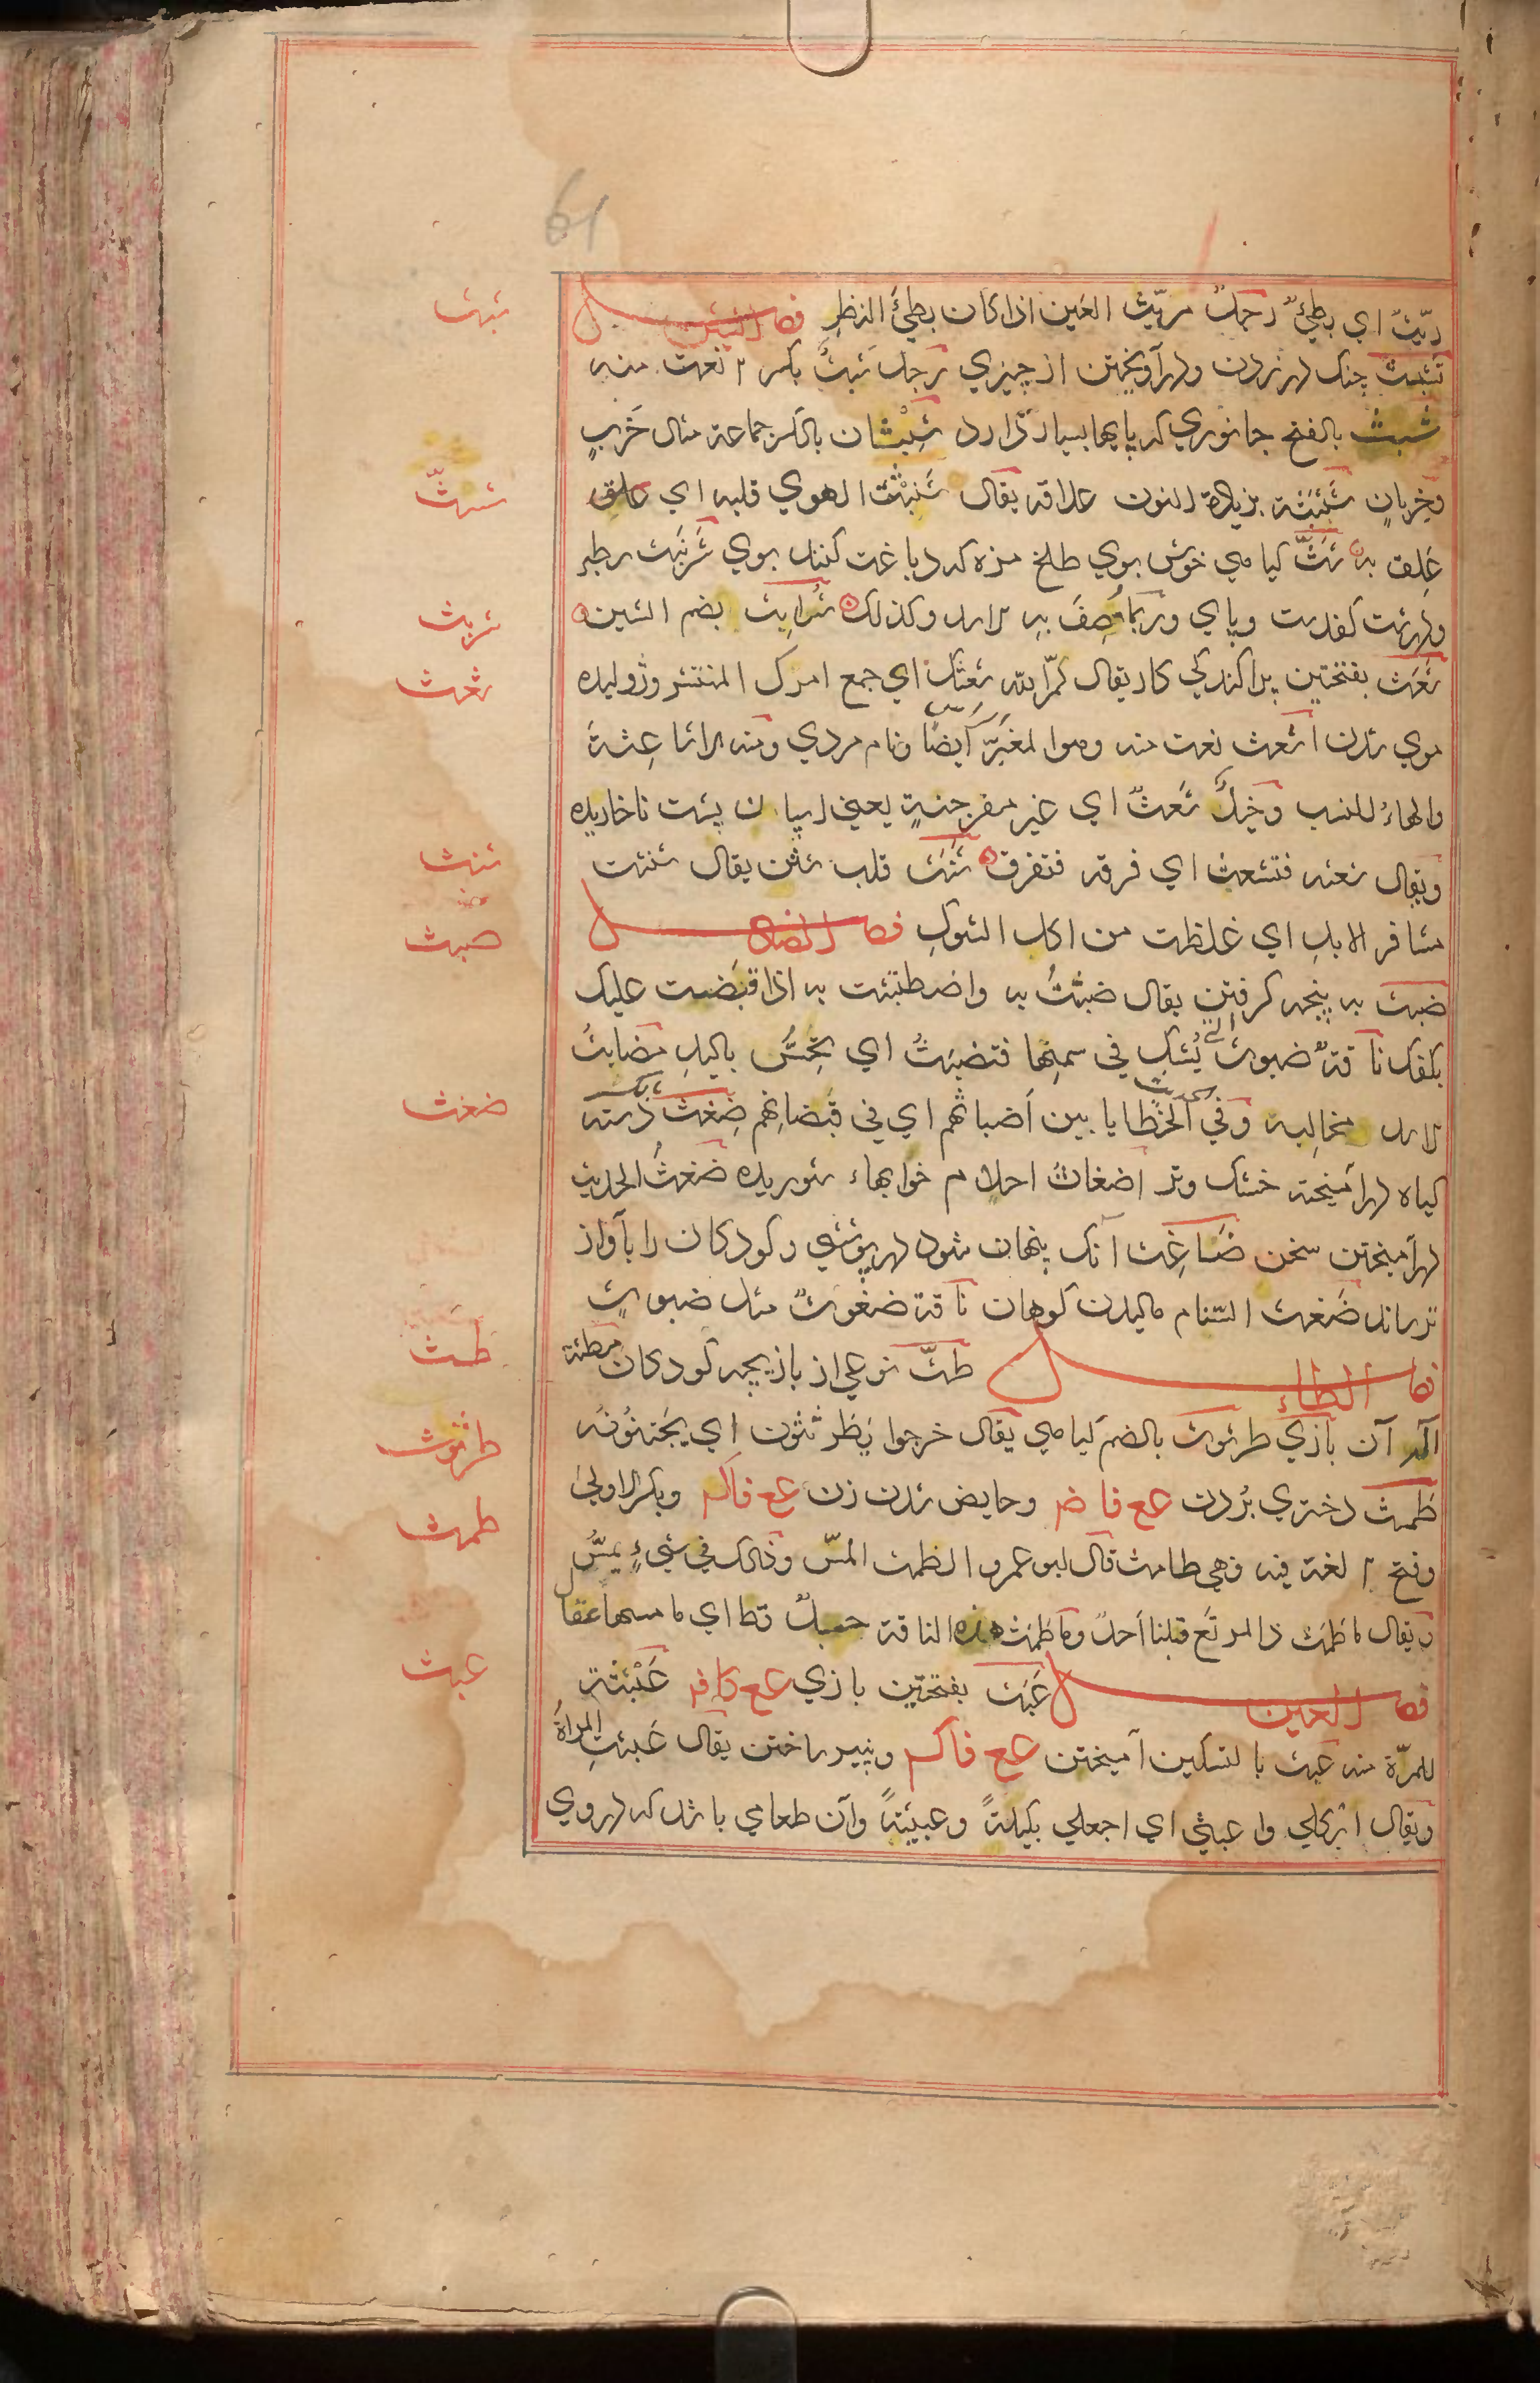 61
ريّث اي بطيءٌ رجلٌ مريّث العَين اذا كان بطيءَ النظرِ فصل الشين
شبث
تشبّث چنك در زدن ودرآويختن از چيزي رجل شَبِثٌ بكسر ٢ نعت منه
شَبَث بالفتح جانوري كه پايها بسيار دارد شِبْثان بالكسر جماعة مثال خَرَبٍ
وخِربانٍ شَنْبَثة بزيادة النون علاقه يقال شَنْبَثَت الهوي قلبه اي علق
شثّ
عَلِق به شَثّ كياهي خوش بوي طلخ مزه كه دباغت كنند بوي شَرْنَبَث سطبر
ودرشت كفدست وپاي وربّما وُصِفَ به الاسد وكذلك شُرابِث بضم الشين
شربث
شَعَث بفتحتين پراكندكي كار يقال لمّ الله شعثك اي جمع امرك المنتشر وژوليده
شعث
موي شدن اشعث نعت منه وهو المغبَرّ ايضًا ونام مردي ومنه الاشاعِثة
والهاء للنسب وخيلٌ شُعثٌ اي غير مفرجنةٍ يعني اسپان پشت ناخاريده
ويقال شعثه فتشعث اي فرقه فتفرق شَنَث قلب شثن يقال شنثت
شنث
مشافر الابلِ اي غلظت من اكل الشوكِ فصل الضاد
ضبث
ضَبث به پنجه كرفتن يقال ضبثتُ به واضطبثت به اذا قبضت عليك
بكفك ناقةٌ ضبوثٌ التي يُشكّ في سمنها فتضبثُ اي تُجَسُّ باليدِ مضابثُ
الاسد مخالبه وفي الحديث الخطايا بين أضباثهم اي في قبضاتهم ضِغث دسته
ضغث
كياه درآميخته خشك وتر اضغاثُ احلام خوابهاء شوريده ضغثُ الحديث
درآميختن سخن ضَاغِث آنك پنهان شود در پوششي وكودكان را بآواز
ترساند ضَغث السنام ماليدن كوهان ناقة ضغوثٌ مثل ضبوثٍ
فصل الطاء طثّ نوعي از بازيچه كودكان مِطثّة
طثّ
آلت آن بازي طرثوث بالضم كياهي يقال خرجوا يَطَرثَثون اي يجتنونه
طرثوث
طَمث دختري بُردن عع فا ضم وحايض شدن زن عع فا كسر وبكسر الاولى
طمث
وفتح ٢ لغة فيه فهي طامث قال ابو عمرو الطمث المسّ وذلك في شيءٍ يُمسُّ
ويقال ما طَمَث ذا المرتَع قبلنا أحدٌ وما طَمَث هذه الناقة حبلٌ قط اي ما مسها عقال
فصل العين عَبَث بفتحتين بازي عع فا ضم عَبْثة
عبث
للمرّة منه عَبث بالتسكين آميختن عع فا كسر وپنير ساختن يقال عَبَثتِ المراةُ
ويقال ابكلي واعبثي اي اجعلي بكيلةً وعبيثةً وآن طعامي باشد كه در وي